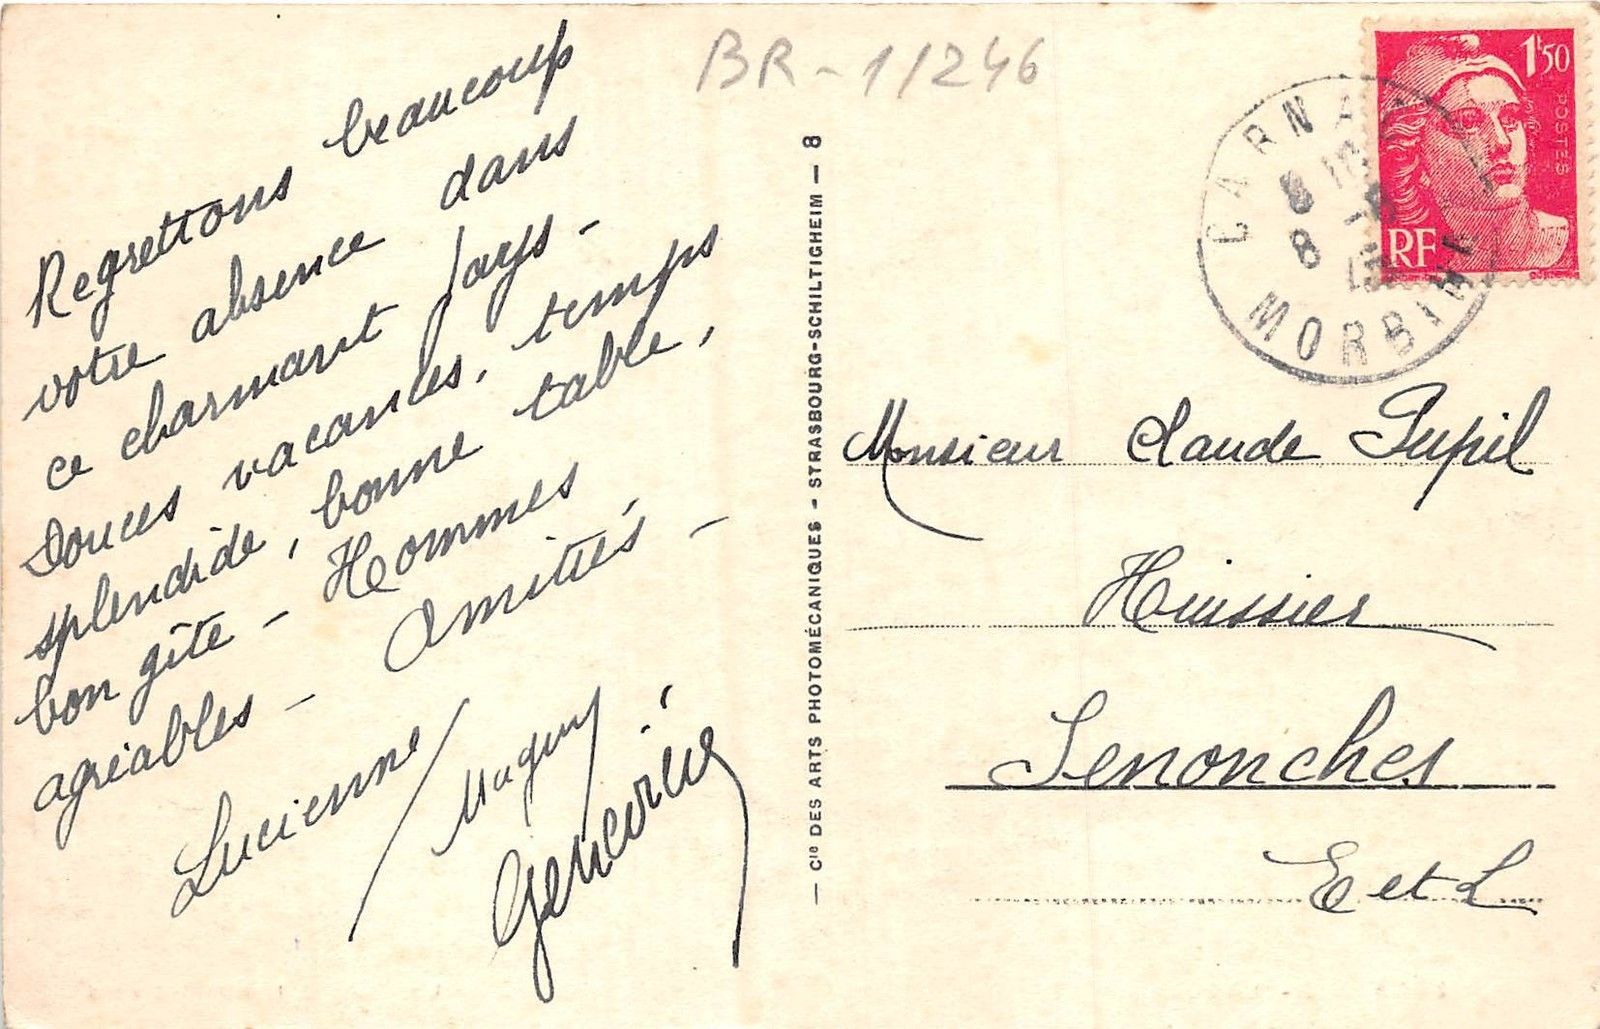 BR-11246
Regrettons beaucoup
votre absence dans
ce charmant pays -
Douces vacances, temps
splendide, bonne table,
bon gîte - Hommes
agréables - Amitiés -
Lucienne
Maguy
1F50
POSTES
RF
CARNAC
8
8
MORBIHAN
Cie DES ARTS PHOTOMÉCANIQUES - STRASBOURG-SCHILTIGHEIM - 8
Monsieur Claude Pupil
Huissier
Senonches
E et L